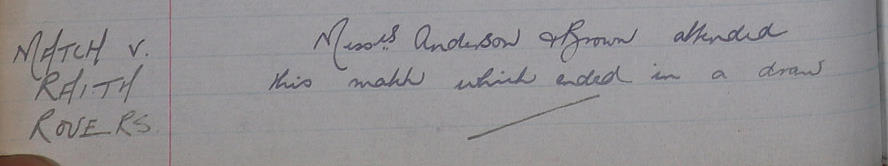 MATCH V.
RAITH
ROVERS.
Messrs Anderson & Brown attended
this match which ended in a draw